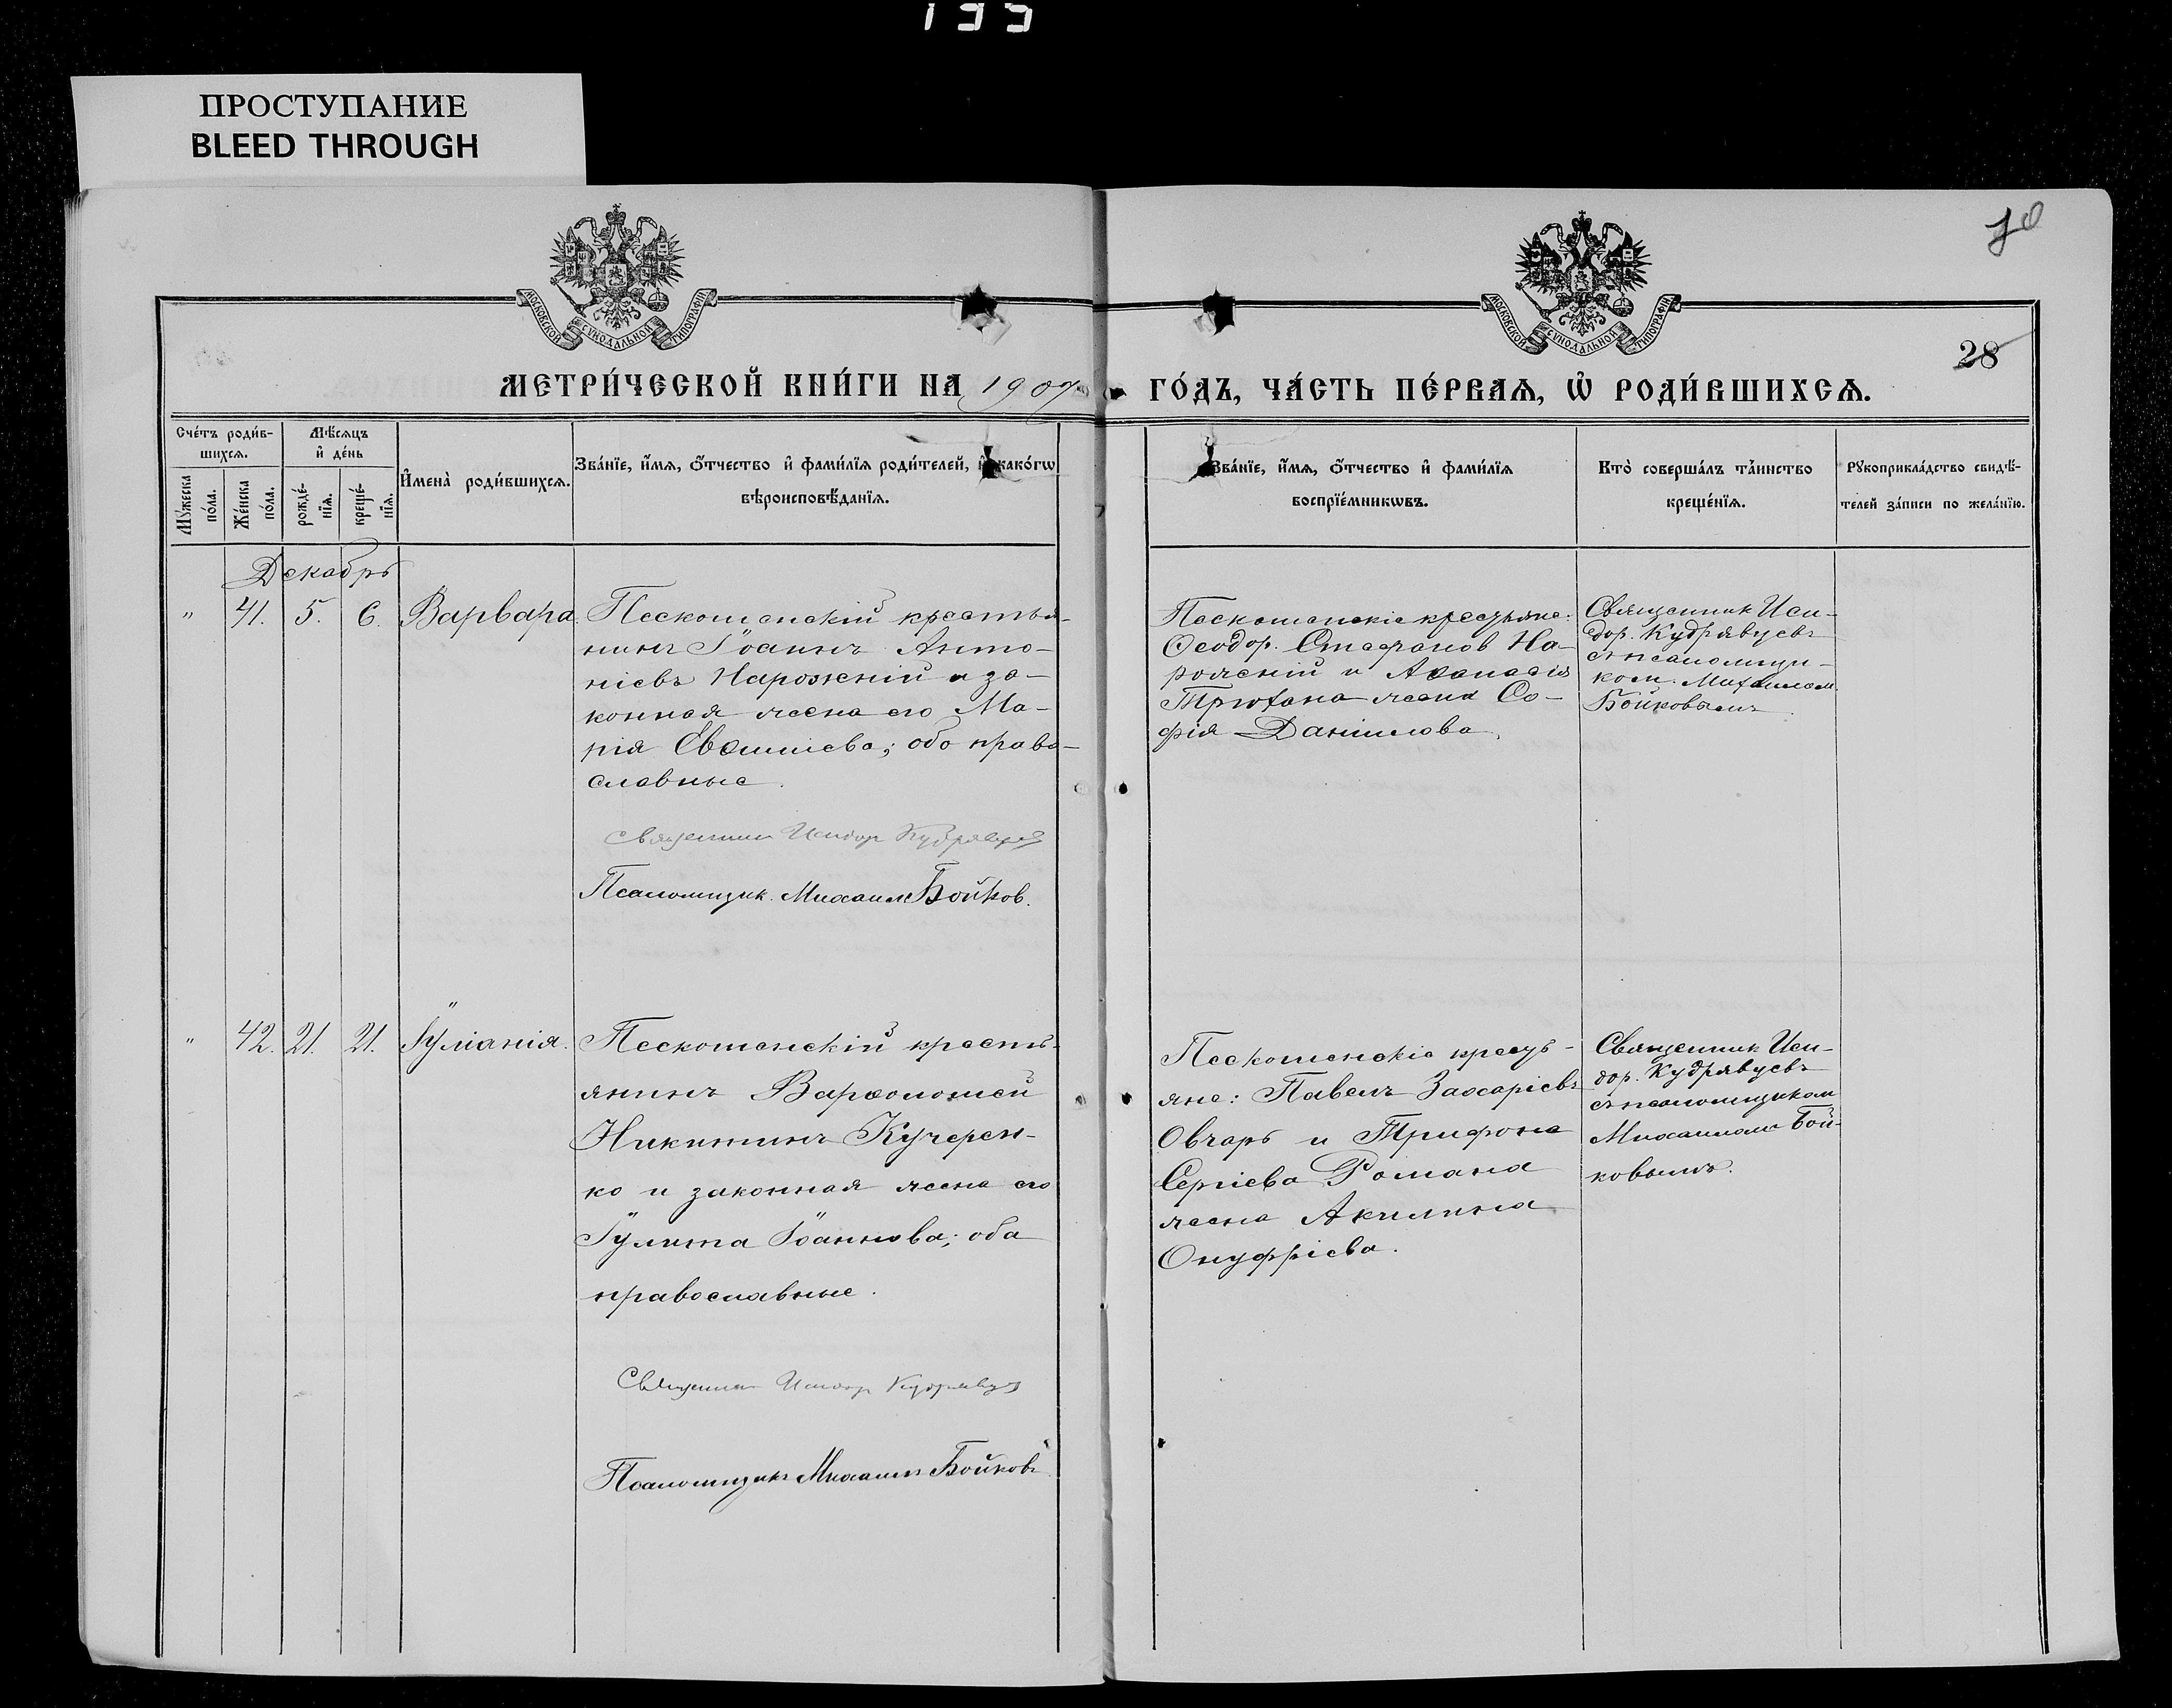 133
ПРОСТУПАНИЕ
BLEED THROUGH
70
МОСКОВСКОЙ СУНОДАЛЬНОЙ ТИПОГРАФІИ
МОСКОВСКОЙ СУНОДАЛЬНОЙ ТИПОГРАФІИ
28
МЕТРИ́ЧЕСКОЙ КНИ́ГИ НА 1907
ГО́ДЪ, ЧА́СТЬ ПЕ́РВАѦ, Ѡ҆ РОДИ́ВШИХСѦ.
Сче́тъ роди́в-
шихсѧ.
Мѣ́сѧцъ
и҆ де́нь
Мꙋ́жеска
по́ла.
Же́нска
по́ла.
рожде́-
нїѧ.
креще́-
нїѧ.
И҆мена̀ роди́вшихсѧ.
Зва́нїе, и҆́мѧ, ѻ҆́тчество и҆ фами́лїѧ роди́телей, и҆ како́гѡ
вѣроисповѣ́данїѧ.
Зва́нїе, и҆́мѧ, ѻ҆́тчество и҆ фами́лїѧ
воспрїе́мникѡвъ.
Кто̀ соверша́лъ та́инство
креще́нїѧ.
Рꙋкоприкла́дство свидѣ́-
телей за́писи по жела́нїю.
Декабрь
" 41. 5. 6. Варвара.
Пескошенскій крестья-
нинъ Іоаннъ Анто-
ніевъ Нарожній и за-
конная жена его Ма-
рія Евѳиміева; оба право-
славные.
Священник Исидор Кудрявцев
Псаломщик. Михаил Бойков.
Пескошенскіе крестьяне:
Ѳеодор. Стефанов На-
рожній и Аѳанасія
жена Со-
фія Даніилова.
Священник Иси-
дор. Кудрявцевъ
съ псаломщи-
ком. Михаилом.
Бойковымъ.
" 42. 21. 21. Іуліанія.
Пескошенскій кресть-
янинъ Варѳоломей
Никитинъ Кучерен-
ко и законная жена его
Іулита Іоаннова; оба
православные.
Священник Исидор Кудрявцев
Псаломщикъ Михаилъ Бойковъ
Пескошенскіе кресть-
яне: Павелъ Захаріевъ
Овчаръ и Трифона
Сергіева Романа
жена Акилина
Онуфріева.
Священник Иси-
дор. Кудрявцевъ
съ псаломщиком
Михаилом Бой-
ковымъ.